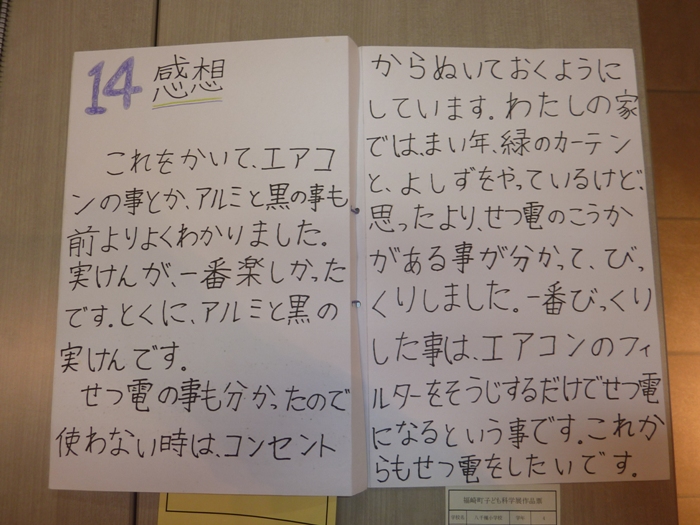 14 感想
これをかいて、エアコ
ンの事とか、アルミと黒の事も
前よりよくわかりました。
実けんが、一番楽しかった
です。とくに、アルミと黒の
実けんです。
せつ電の事も分かったので
使わない時は、コンセント
からぬいておくように
しています。わたしの家
では、まい年、緑のカーテン
と、よしずをやっているけど、
思ったより、せつ電のこうか
がある事が分かって、びっ
くりしました。一番びっくり
した事は、エアコンのフィ
ルターをそうじするだけでせつ電
になるという事です。これか
らもせつ電をしたいです。
福崎町子ども科学展作品展